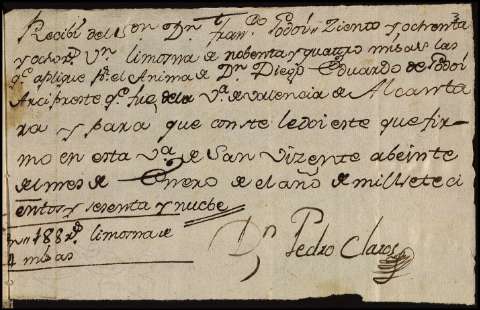 3
Recibi del Sor Dn Franco Godoi Ziento y ochenta
y ocho Rs Vn limosna de nobenta y quattro misas las
qe aplique Pr el Anima de Dn Diego Eduardo de Godoi
Arcipreste qe fue de la Va de Valencia de Alcanta
ra y para que conste le doi este que fir-
mo en esta Va de San Vizente a beinte
de el mes de Enero de el año de mill sete ci
entos y sesenta y nuebe
188 Rs limosna de
misas
Dn Pedro Claros